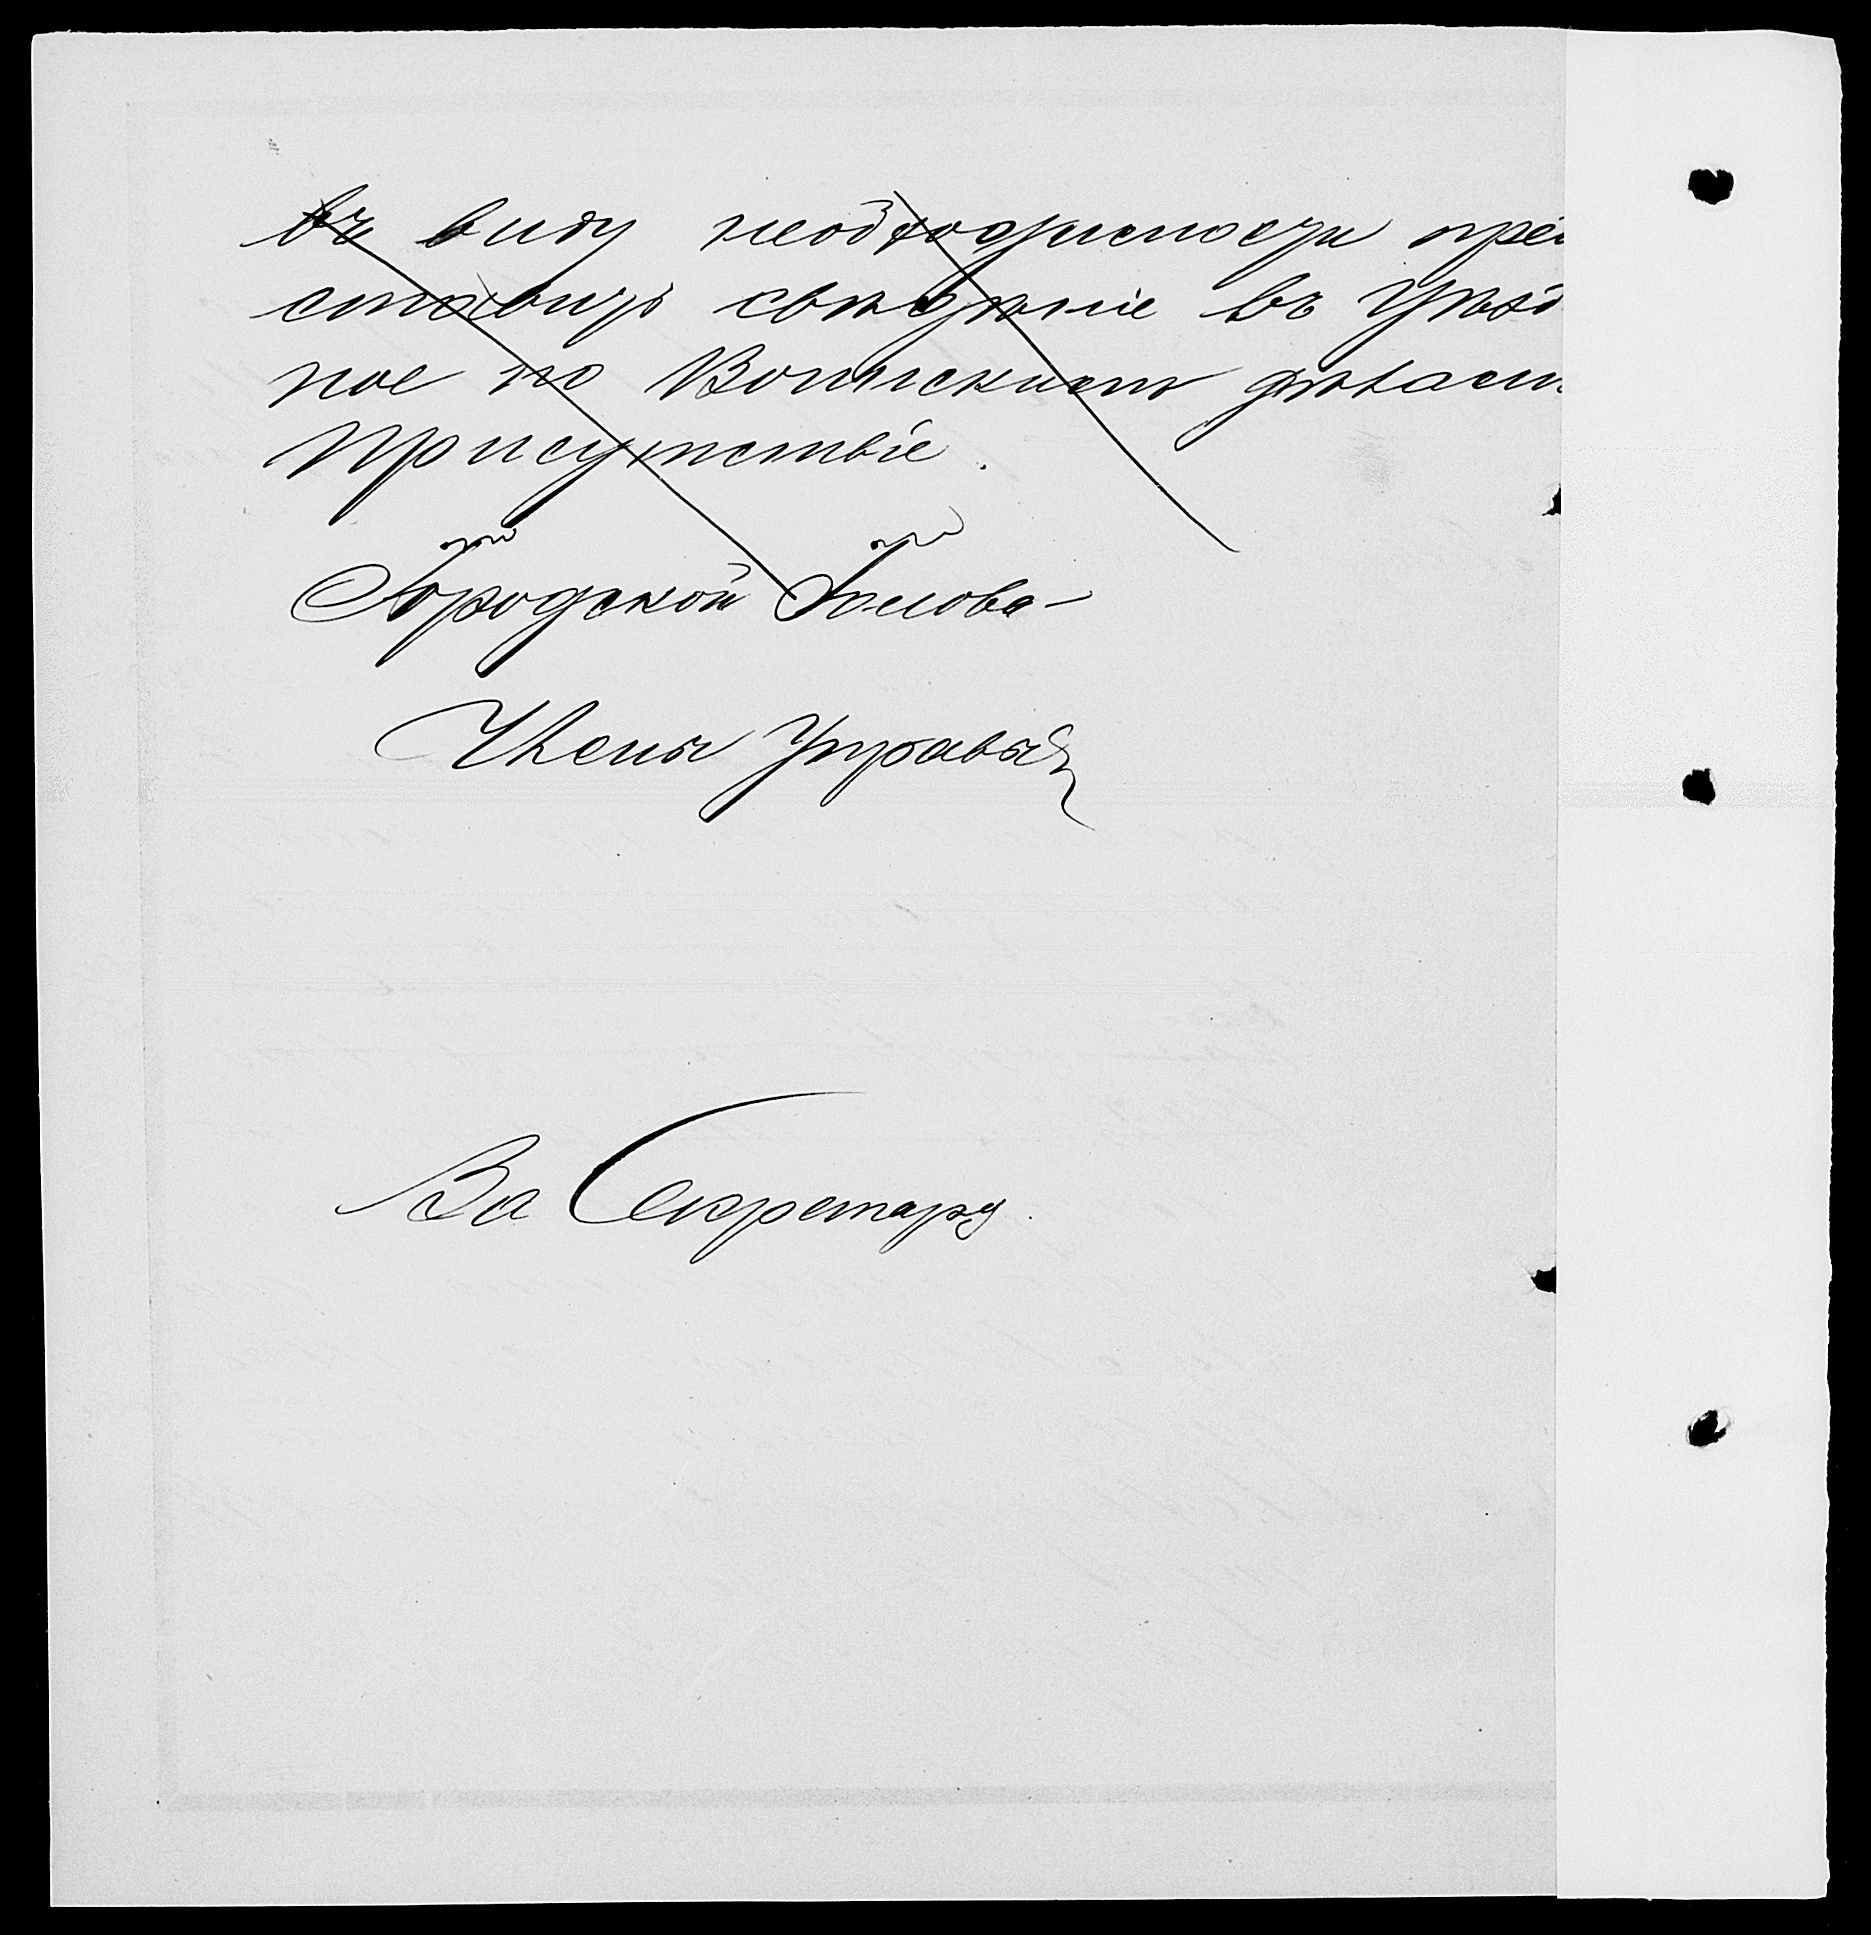 въ виду необходимости пред
ставить сведение въ Уезд
ное по Воинскимъ деламъ
Присутствие.
Городской Голова
Члены Управы
За Секретаря